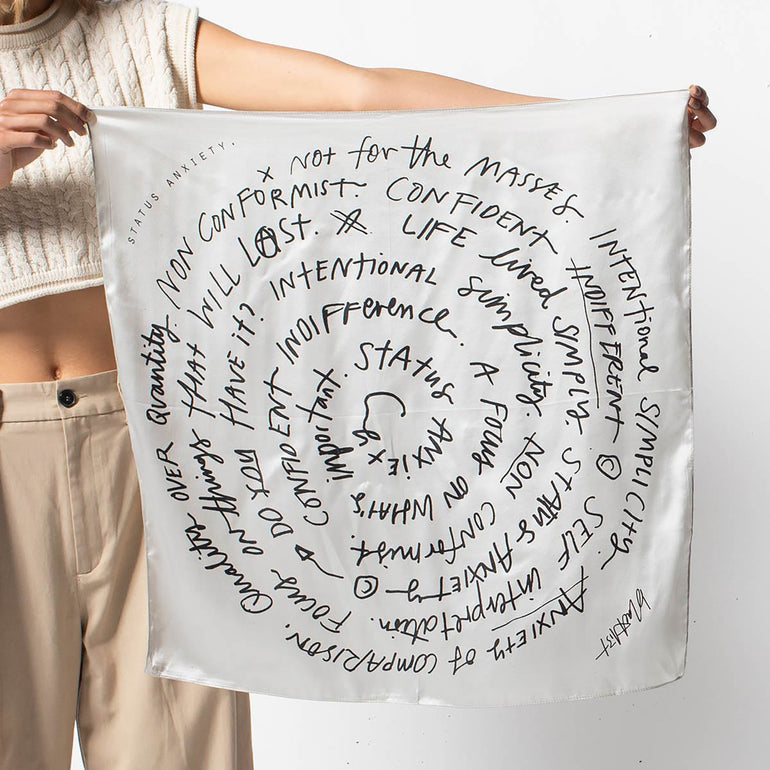 STATUS ANXIETY.
x NOT for the MASSES. INTENTIONAL SIMPLICITY. ANXIETY of COMPARISON. Quality OVER quantity.
NON CONFORMIST. CONFIDENT INDIFFERENT © SELF interpretation. Focus on things THAT WILL LAST.
LIFE lived SIMPLY. STATUS ANXIETY © → DO YOU HAVE it?
INTENTIONAL simplicity. NON CONFORMIST. CONFIDENT INDIFFERENCE.
A FOCUS ON WHAT'S important.
STATUS ANXIETY